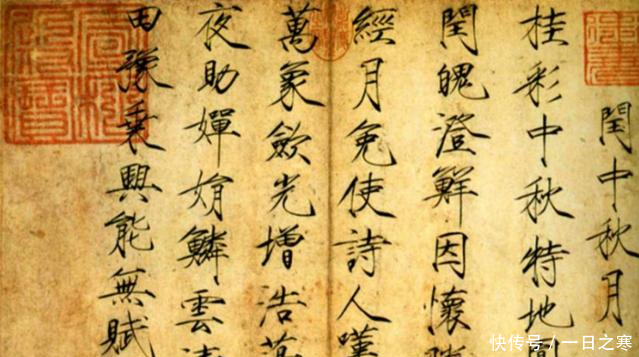 閏中秋月
桂彩中秋特地
閏魄澄鮮因懷
經月免使詩人嘆
萬象歛光增浩
夜助嬋娟鱗雲清
田豫乘興能無賦
快传号/一日之寒